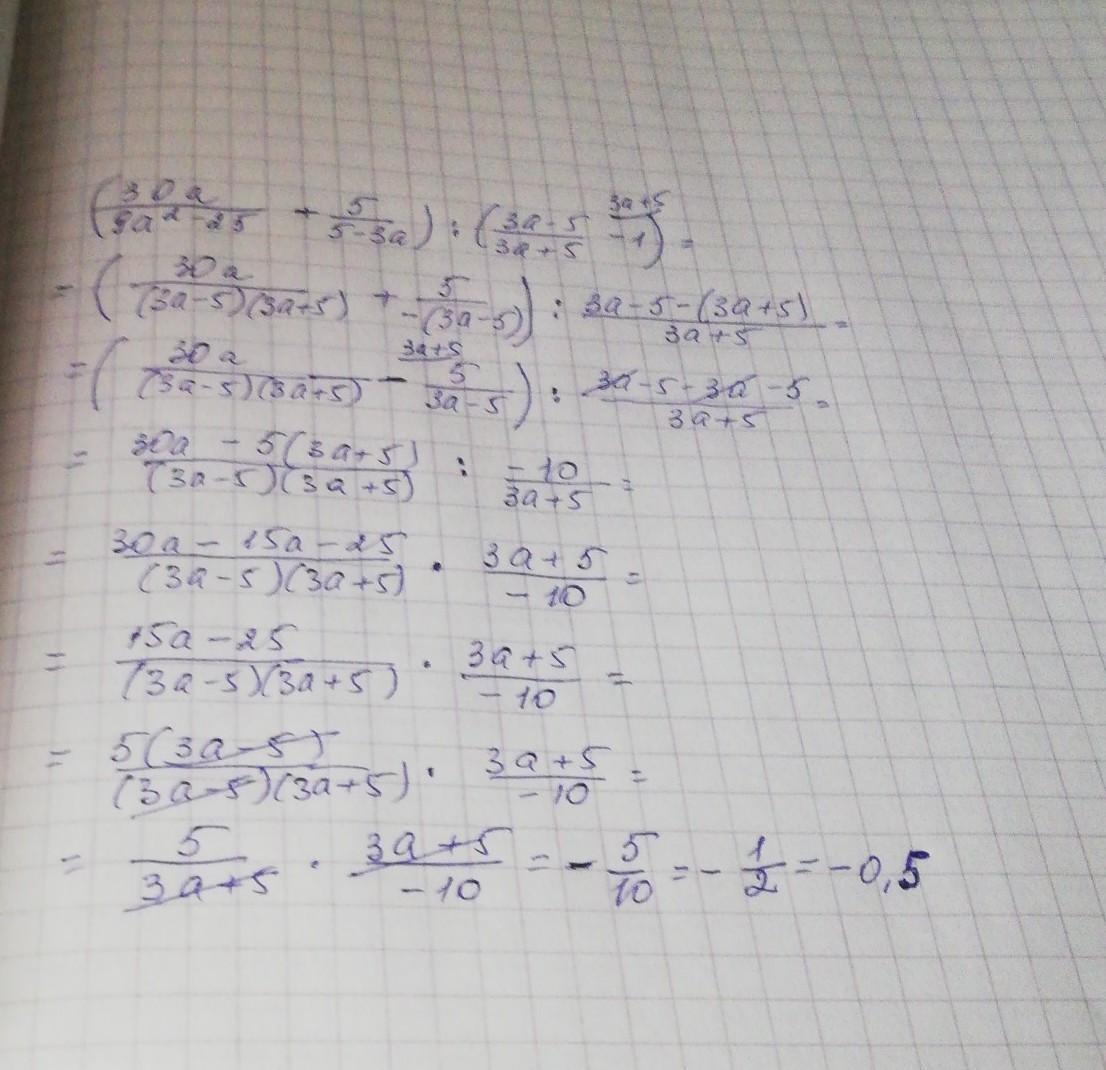 (30a/(9a²-25) + 5/(5-3a)) : ((3a-5)/(3a+5) - 1^(3a+5)) =
= (30a/((3a-5)(3a+5)) + 5/(-(3a-5))) : (3a-5-(3a+5))/(3a+5) =
= (30a/((3a-5)(3a+5)) - 5^(3a+5)/(3a-5)) : (3a-5-3a-5)/(3a+5) =
= (30a - 5(3a+5))/((3a-5)(3a+5)) : (-10)/(3a+5) =
= (30a - 15a - 25)/((3a-5)(3a+5)) · (3a+5)/(-10) =
= (15a - 25)/((3a-5)(3a+5)) · (3a+5)/(-10) =
= 5(3a-5)/((3a-5)(3a+5)) · (3a+5)/(-10) =
= 5/(3a+5) · (3a+5)/(-10) = - 5/10 = - 1/2 = -0,5